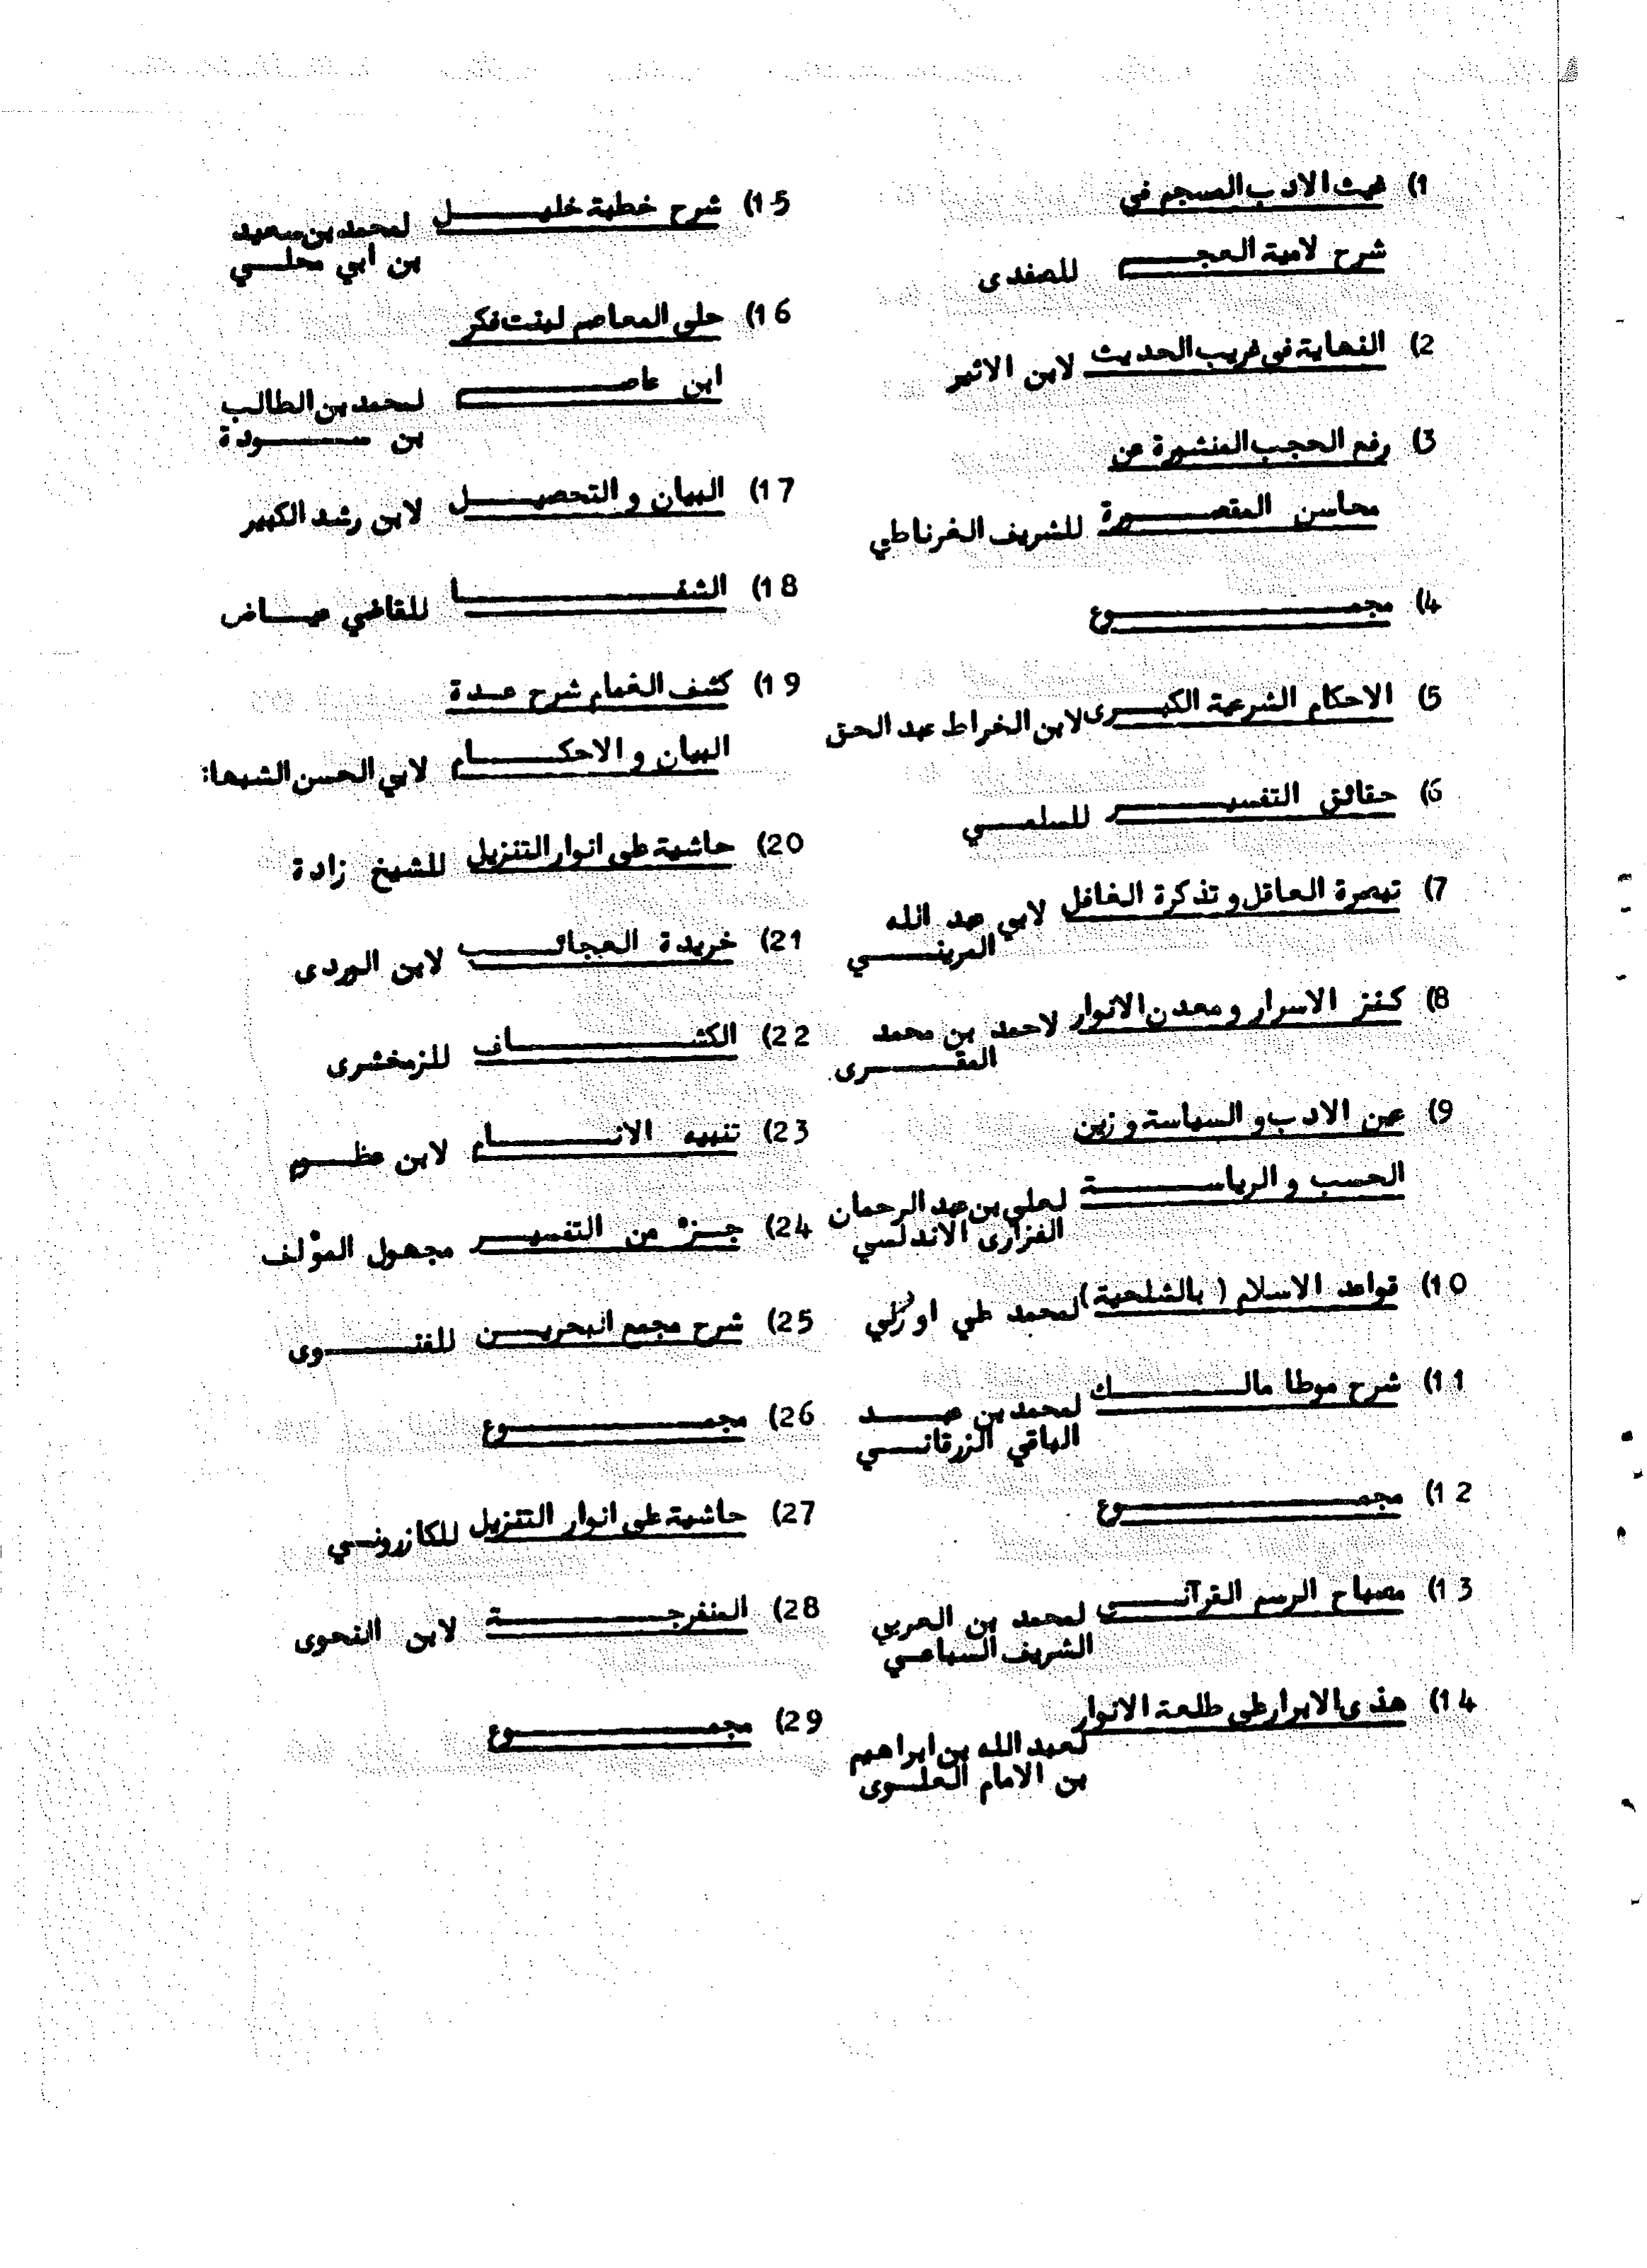 1) غيث الادب المسجم في
شرح لامية العجم للصفدى
2) النهاية في غريب الحديث لابن الاثير
3) رفع الحجب المنشورة عن
محاسن المقصورة للشريف الغرناطي
4) مجموع
5) الاحكام الشرعية الكبرى لابن الخراط عبد الحق
6) حقائق التفسير للسلمي
7) تبصرة العاقل و تذكرة الغافل لابي عبد الله
المريني
8) كنز الاسرار و معدن الانوار لاحمد بن محمد
المقرى
9) عين الادب و السياسة و زين
الحسب و الرياسة لعلي بن عبد الرحمان
الفزارى الاندلسي
10) قواعد الاسلام ( بالشلحية) لمحمد علي اوزلي
11) شرح موطا مالك لمحمد بن عبد
الباقي الزرقاني
12) مجموع
13) مصباح الرسم القرآني لمحمد بن العربي
الشريف السباعي
14) هذى الابرار على طلعة الانوار
لعبد الله بن ابراهيم
بن الامام العلوى
15) شرح خطبة خليل لمحمد بن سعيد
بن ابي محلي
16) حلى المعاصم لبنت فكر
ابن عاصم لمحمد بن الطالب
بن سودة
17) البيان و التحصيل لابن رشد الكبير
18) الشفا للقاضي عياض
19) كشف الغمام شرح عمدة
البيان و الاحكام لابي الحسن الشبها:
20) حاشية على انوار التنزيل للشيخ زادة
21) خريدة العجائب لابن الوردى
22) الكشاف للزمخشرى
23) تنبيه الانام لابن عظوم
24) جزء من التفسير مجهول المؤلف
25) شرح مجمع البحرين للغنوى
26) مجموع
27) حاشية على انوار التنزيل للكازروني
28) المنفرجة لابن النحوى
29) مجموع